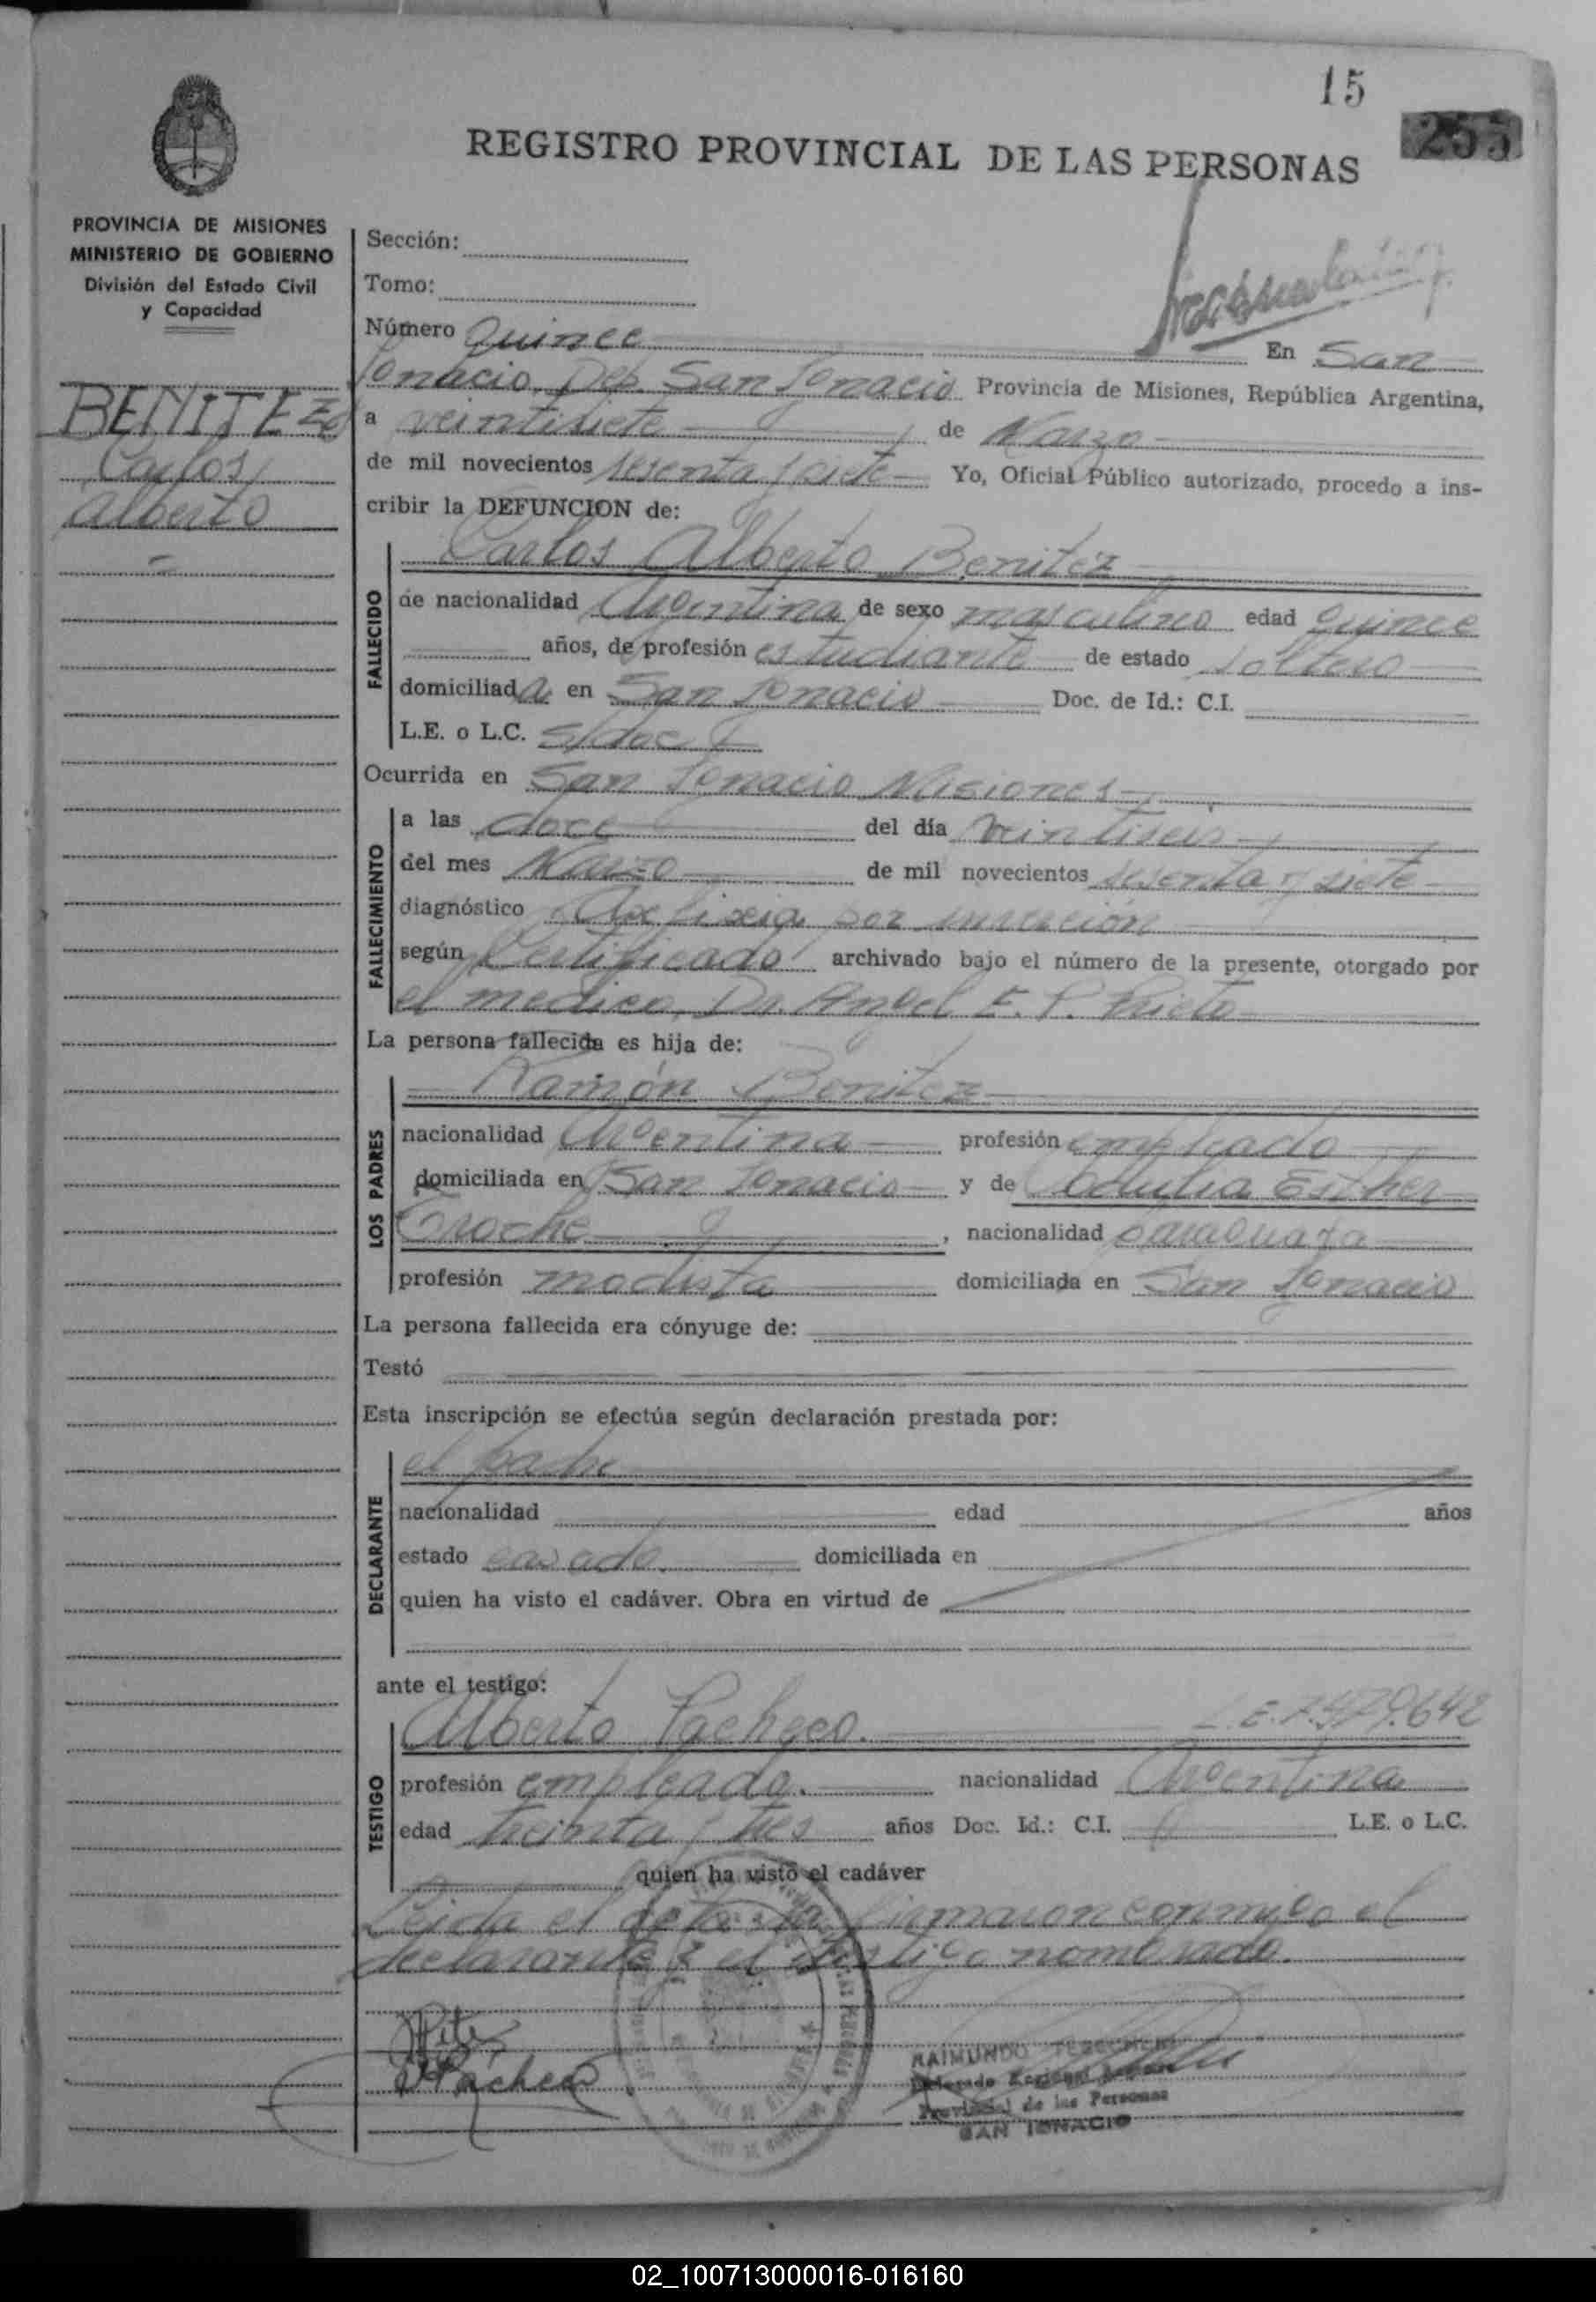 15
255
REGISTRO PROVINCIAL DE LAS PERSONAS
PROVINCIA DE MISIONES
MINISTERIO DE GOBIERNO
División del Estado Civil
y Capacidad
BENITEZ
Carlos
Alberto
Sección:
Tomo:
Número Quince En San
Ignacio, Dep. San Ignacio Provincia de Misiones, República Argentina,
a veintisiete de Marzo
de mil novecientos sesenta y siete Yo, Oficial Público autorizado, procedo a ins-
cribir la DEFUNCION de:
Carlos Alberto Benitez
FALLECIDO
de nacionalidad Argentina de sexo masculino edad quince
años, de profesión estudiante de estado soltero
domiciliada en San Ignacio Doc. de Id.: C.I.
L.E. o L.C. S/doc
Ocurrida en San Ignacio Misiones
FALLECIMIENTO
a las doce del día veintiseis
del mes Marzo de mil novecientos sesenta y siete
diagnóstico Asfixia por
según Certificado archivado bajo el número de la presente, otorgado por
el medico, Dr. Angel E. P. Prieto
La persona fallecida es hija de:
LOS PADRES
Ramón Benitez
nacionalidad Argentina profesión empleado
domiciliada en San Ignacio y de Esther
Troche, nacionalidad paraguaya
profesión modista domiciliada en San Ignacio
La persona fallecida era cónyuge de:
Testó
Esta inscripción se efectúa según declaración prestada por:
DECLARANTE
el padre
nacionalidad edad años
estado casado. domiciliada en
quien ha visto el cadáver. Obra en virtud de
ante el testigo:
TESTIGO
Alberto Pacheco. L.E. 7.479.642
profesión empleado. nacionalidad Argentina
edad treinta y tres años Doc. Id.: C.I. L.E. o L.C.
quien ha visto el cadáver
Leida el acta la firmaron conmigo el
declarante y el testigo nombrado.
Pacheco
RAIMUNDO
Delegado Regional
Provincial de las Personas
SAN IGNACIO
02_100713000016-016160